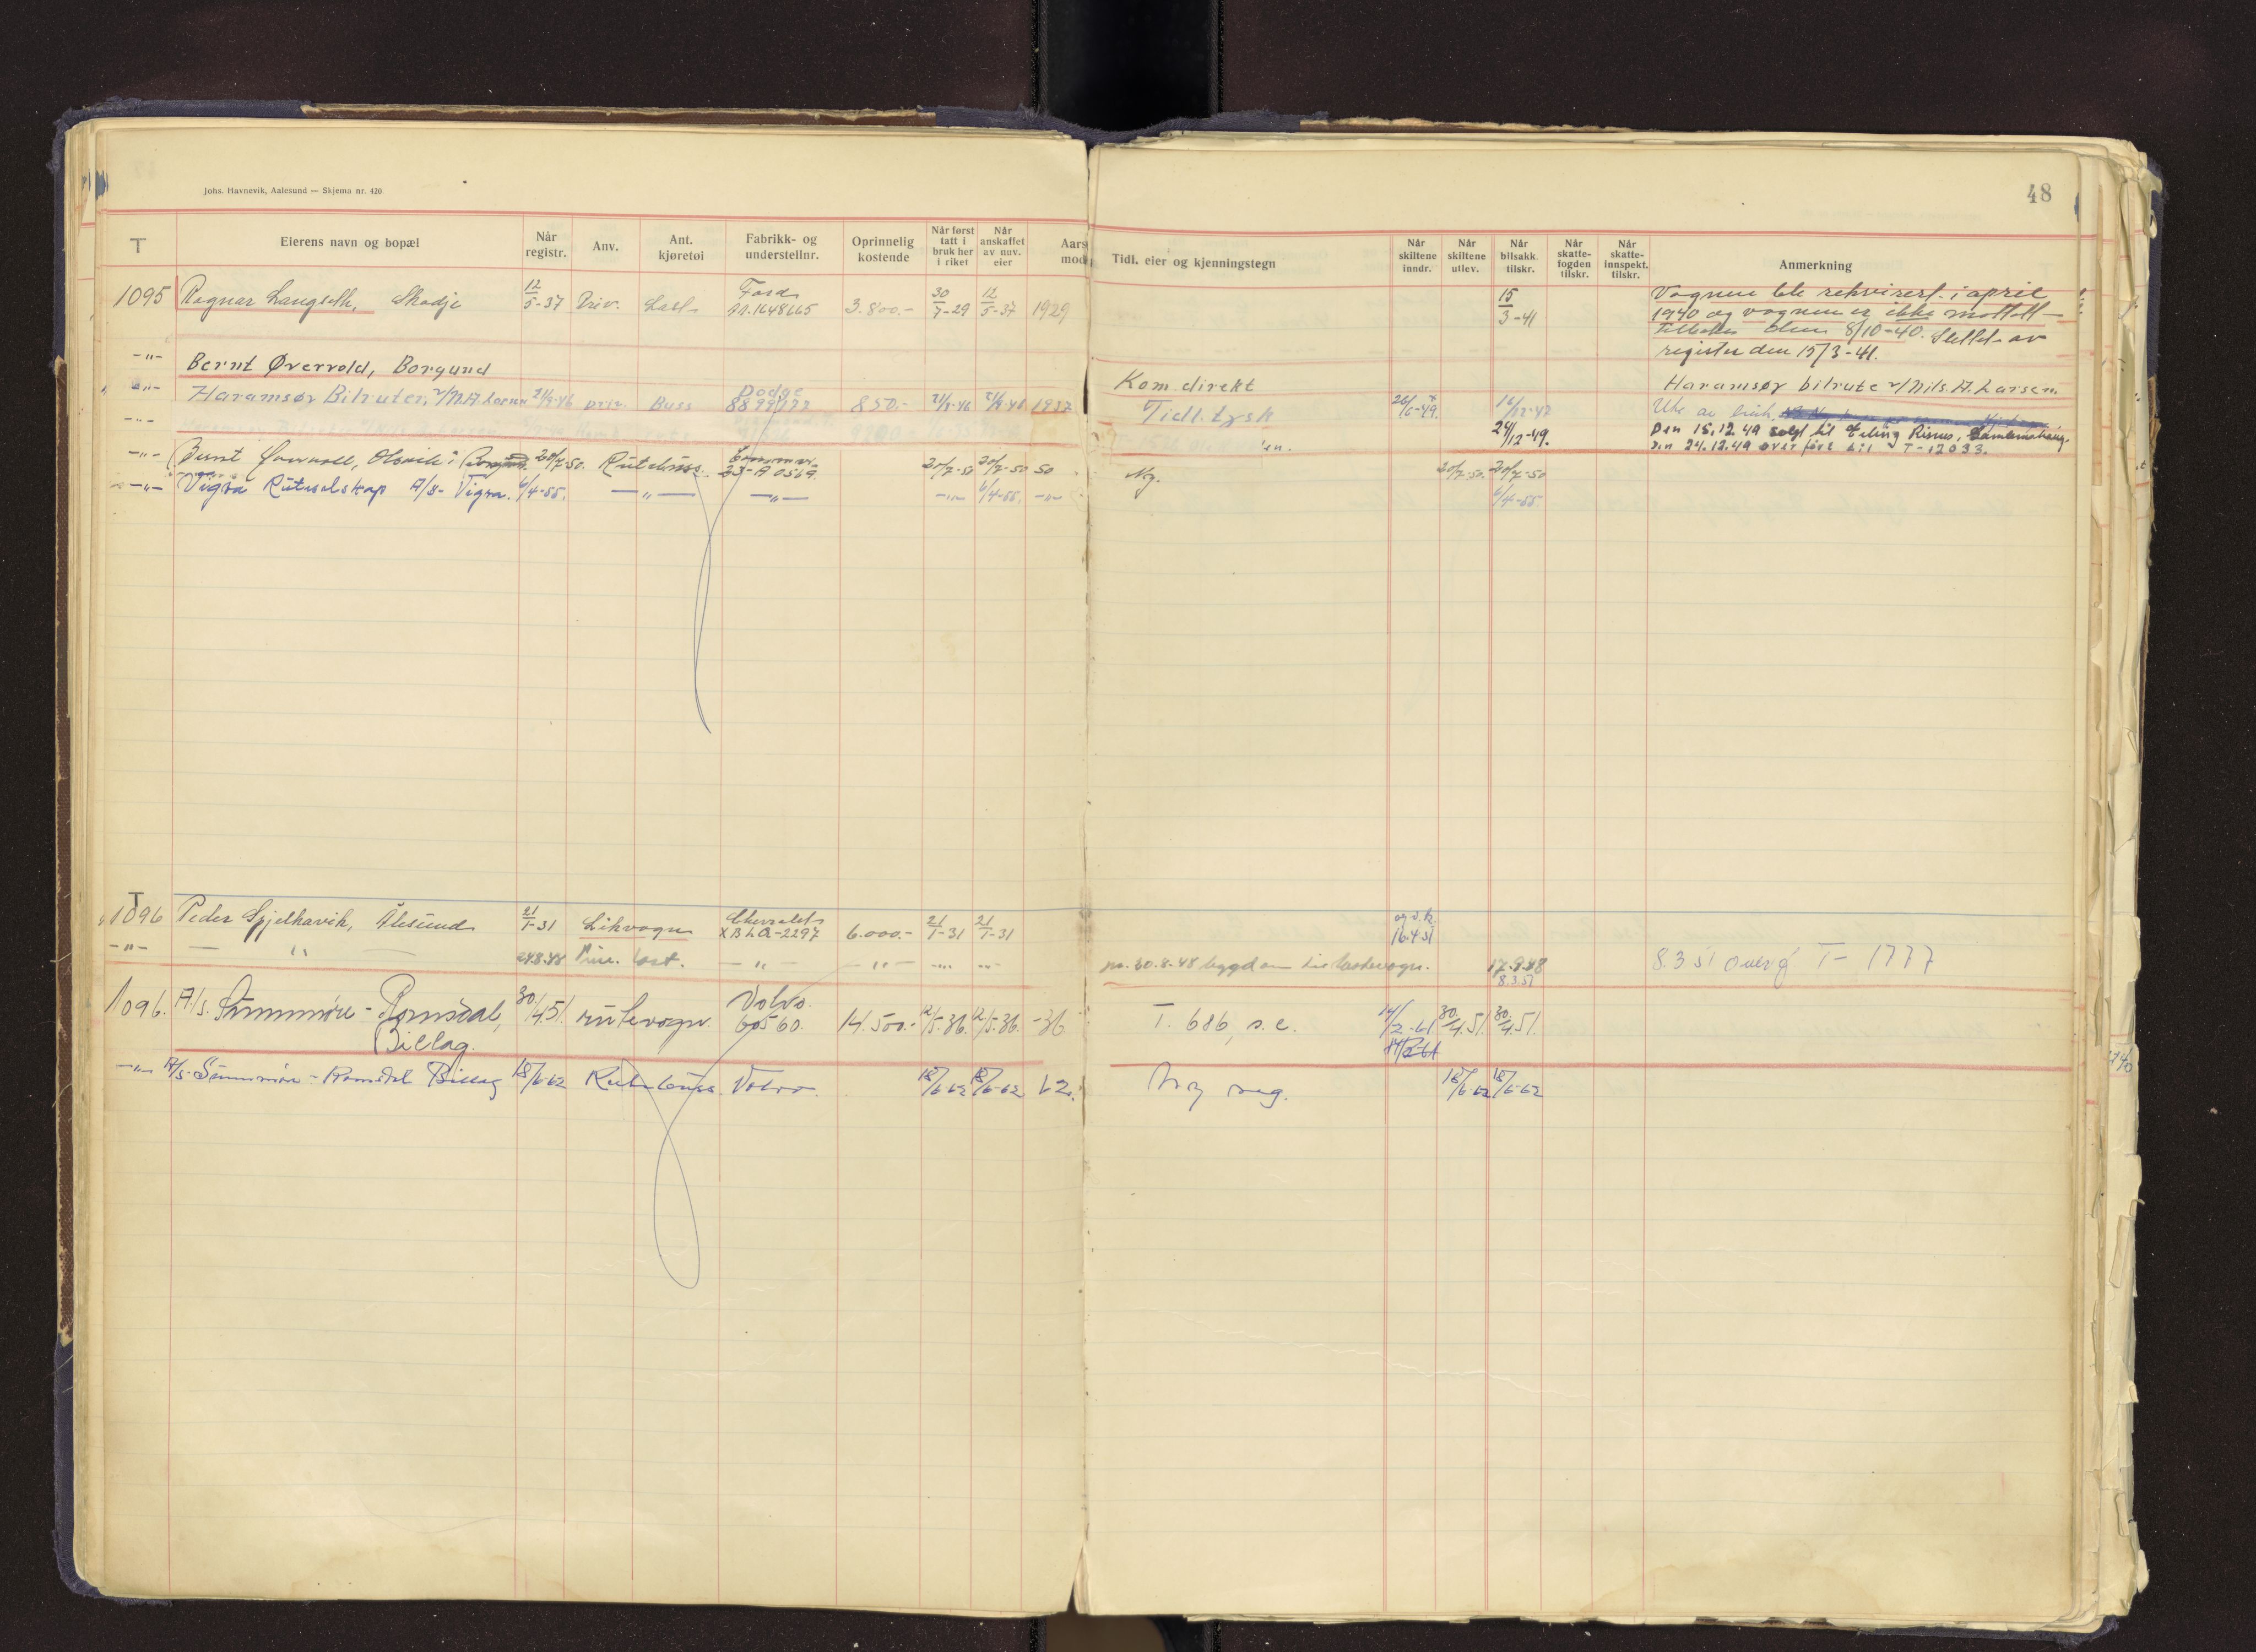 Johs. Havnevik, Aalesund — Skjema nr. 420
48
T
Eierens navn og bopæl
Når registr.
Anv.
Ant. kjøretøi
Fabrikk- og understellnr.
Oprinnelig kostende
Når først tatt i bruk her i riket
Når anskaffet av nuv. eier
Aars mod
Tidl. eier og kjenningstegn
Når skiltene inndr.
Når skiltene utlev.
Når bilsakk. tilskr.
Når skatte-fogden tilskr.
Når skatte-innspekt. tilskr.
Anmerkning
1095 Ragnar Langseth, Skodje 12/5-37 Priv. Last- Ford AA.1648665 3.800.- 30/7-29 12/5-37 1929 15/3-41
Vognen ble rekvirert i april
1940 og vognen er ikke mottatt
tilbake den 8/10-40. Slettet av
register den 15/3-41.
-"- Bernt Øvervold, Borgund
Kom. direkt Haramsøy bilrute v/Nils A. Larsen
-"- Haramsøy Bilruter, v/N.A. Larsen Priv. Buss Dodge 8899777 850.- 1937 Tidl. tysk 26/6-49. 16/12-47
-"- 24/12-49.
Den 15.12.49 solgt til Risnes,
den 24.12.49 overført til T-12033.
-"- Bernt Øvervoll, Olsvik i 20/7-50. Rutebuss. Commer 23-A0569 20/7-50 20/7-50 50 Ny. 20/7-50. 20/7-50
-"- Vigra Ruteselskap A/S- Vigra. 6/4-55. -"- -"- -"- 6/4-55. -"- 6/4-55
T
1096 Peder Spjelkavik, Ålesund 21/1-31 Likvogn Chevrolet XBLQ-2297 6.000.- 21/1-31 21/1-31 16.4.51
-"- -"- 24.8.48 Priv. last. -"- -"- -"- -"- pr. 20.8.48 bygd om til lastevogn. 17.9.48 8.3.51 8.3 51 overf T-1777
1096. A/s. Sunnmøre-Romsdal, Billag. 30/4.51. rutevogn. Volvo. 60560. 14.500.- 12/5.36. 12/5.36. -36 T. 686, s.e. 14/2-61 30/4.51. 30/4.51.
14/2-61
-"- A/S. Sunnmøre-Romsdal Billag 18/6-62 Rutebuss. Volvo. 18/6-62 18/6-62 62. Ny reg. 18/6-62 18/6-62